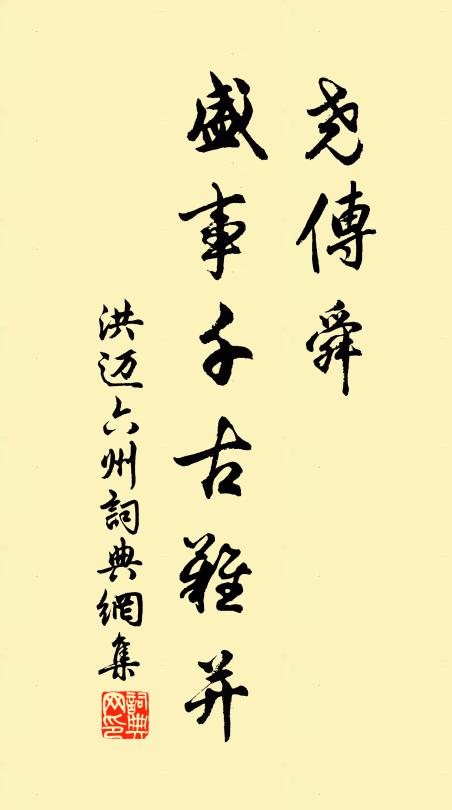 尧傳舜
盛事千古難并
洪迈六州詞典網集
詞典网印